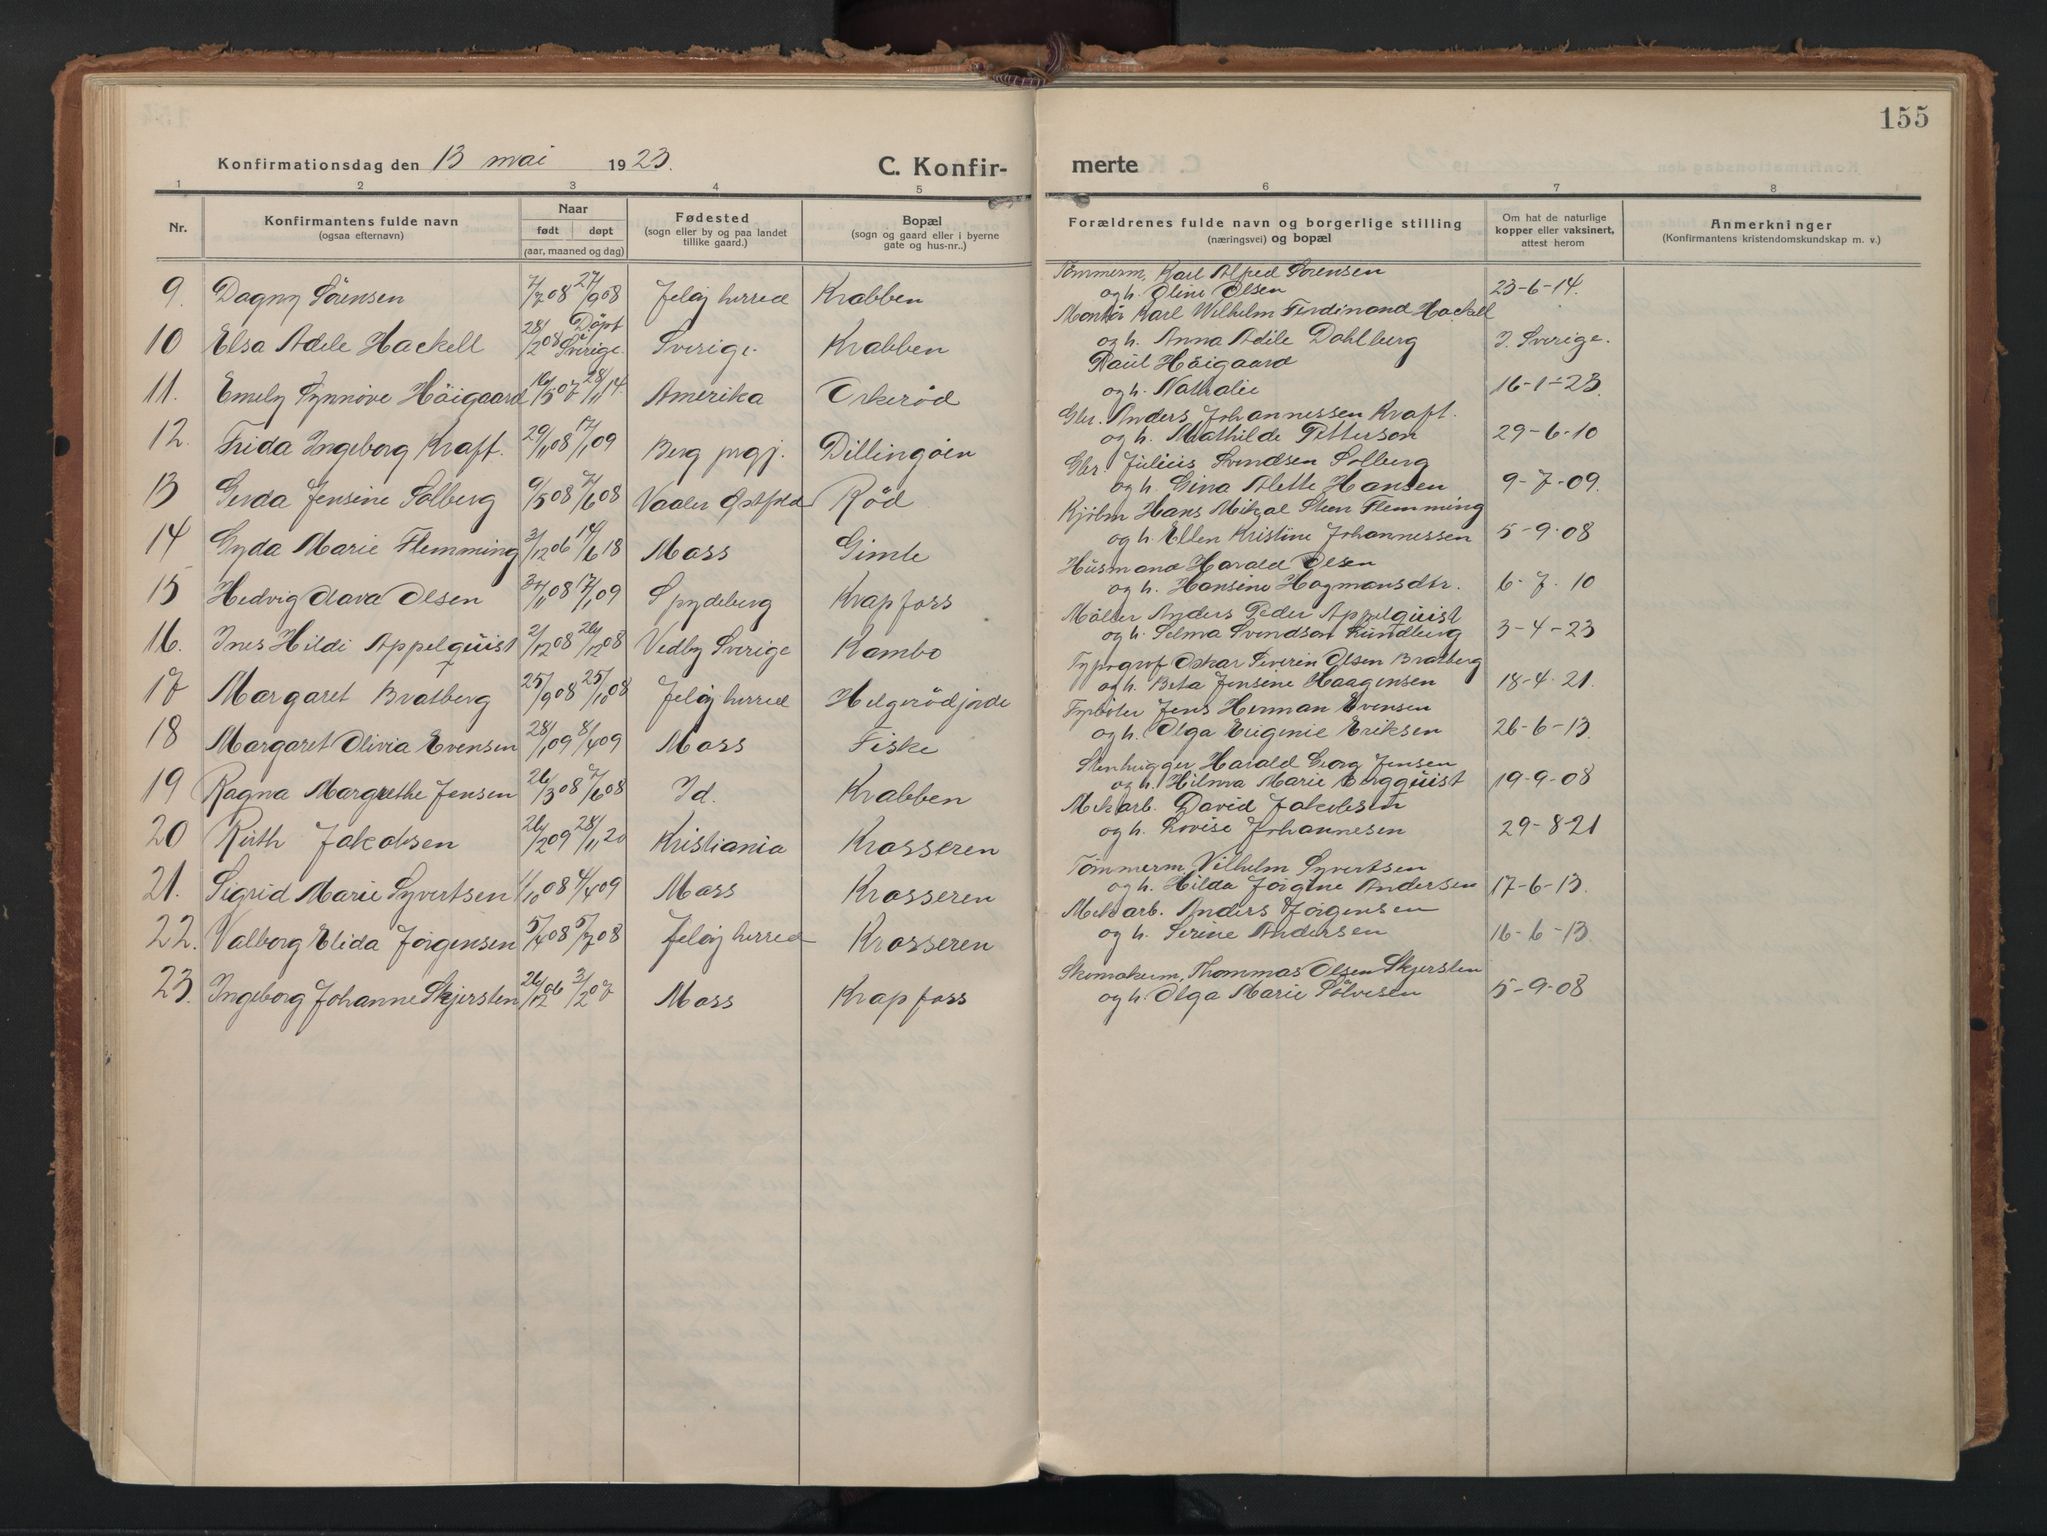 155
Konfirmationsdag den 13 mai 1923.
C. Konfir-
merte
1 2 3 4 5 6 7 8
Nr.
Konfirmantens fulde navn
(ogsaa efternavn)
Naar
født døpt
(aar, maaned og dag)
Fødested
(sogn eller by og paa landet
tillike gaard.)
Bopæl
(sogn og gaard eller i byerne
gate og hus-nr..)
Forældrenes fulde navn og borgerlige stilling
(næringsvei) og bopæl
Om hat de naturlige
kopper eller vaksinert,
attest herom
Anmerkninger
(Konfirmantens kristendomskundskap m. v.)
Tömmerm. Karl Alfred Sörensen
9 Dagny Sörensen 7/7 08 27/9 08 Jeløy herred Krabben og h. Oline Olsen 23-6-14.
Montör Karl Wilhelm Ferdinand Hackell
10 Elsa Adele Hackell 28/2 08 Döpt i Sverige. Sverige. Krabben og h. Anna Adele Dahlberg I. Sverige.
Paul Höigaard
11. Emely Synnöve Höigaard 16/5 07 28/11 14. Amerika Orkeröd og h. Nathalie 16-1-23.
Gbr. Anders Johannessen Kraft.
12. Frida Ingeborg Kraft. 29/11 08 17/1 09 Berg prgj. Dillingöen og h. Mathilde Petterson 29-6-10
Gbr Julius Svendsen Solberg
13 Gerda Jensine Solberg 9/5 08 7/6 08 Vaaler Østfold Röd og h. Gina Alette Hansen 9-7-09.
Kjölm Hans Mikal Steen Flemming
14 Gyda Marie Flemming 3/12 06 14/6 18 Moss Gimle og h. Ellen Kristine Johannessen 5-9-08
Husmand Harald Olsen
15 Hedvig Olava Olsen 30/11 08 17/1 09 Spydeberg Krapfoss og h. Hansine Hagmansdtr. 6-7-10
Möller Anders Peder Appelquist
16. Ines Hildi Appelquist 2/12 08 26/12 08 Vedby Sverige Kambo og h. Selma Svendson Lundberg 3-4-23
Typograf Oskar Severin Olsen Bratberg
17 Margaret Bratberg 25/9 08 25/10 08 Jeløy herred Helgerödjorde og h. Beta Jensine Haagensen 18-4-21.
Fyrböter Jens Herman Evensen
18 Margaret Olivia Evensen 28/1 09 8/4 09 Moss Fiske og h. Olga Eugenie Eriksen 26-6-13.
Stenhugger Harald Georg Jensen
19 Ragna Margrethe Jensen 26/3 08 7/6 08 Id. Krabben og h. Hilma Marie Bergquist 19-9-08
Mek arb. David Jakobsen
20 Ruth Jakobsen 26/2 09 28/11 20 Kristiania Krosseren og h. Lovise Johannesen 29-8-21
Tömmerm. Vilhelm Syvertsen
21. Sigrid Marie Syvertsen 1/10 08 4/4 09 Moss Krosseren og h. Hilda Jörgine Andersen 17-6-13.
Mek arb. Anders Jörgensen
22. Valborg Elida Jörgensen 5/4 08 5/7 08 Jeløy herred Krosseren og h. Serine Andersen 16-6-13.
Skomakerm. Thommas Olsen Skjersten
23. Ingeborg Johanne Skjersten 26/12 06 3/2 07 Moss Krapfoss og h. Olga Marie Sölvesen 5-9-08